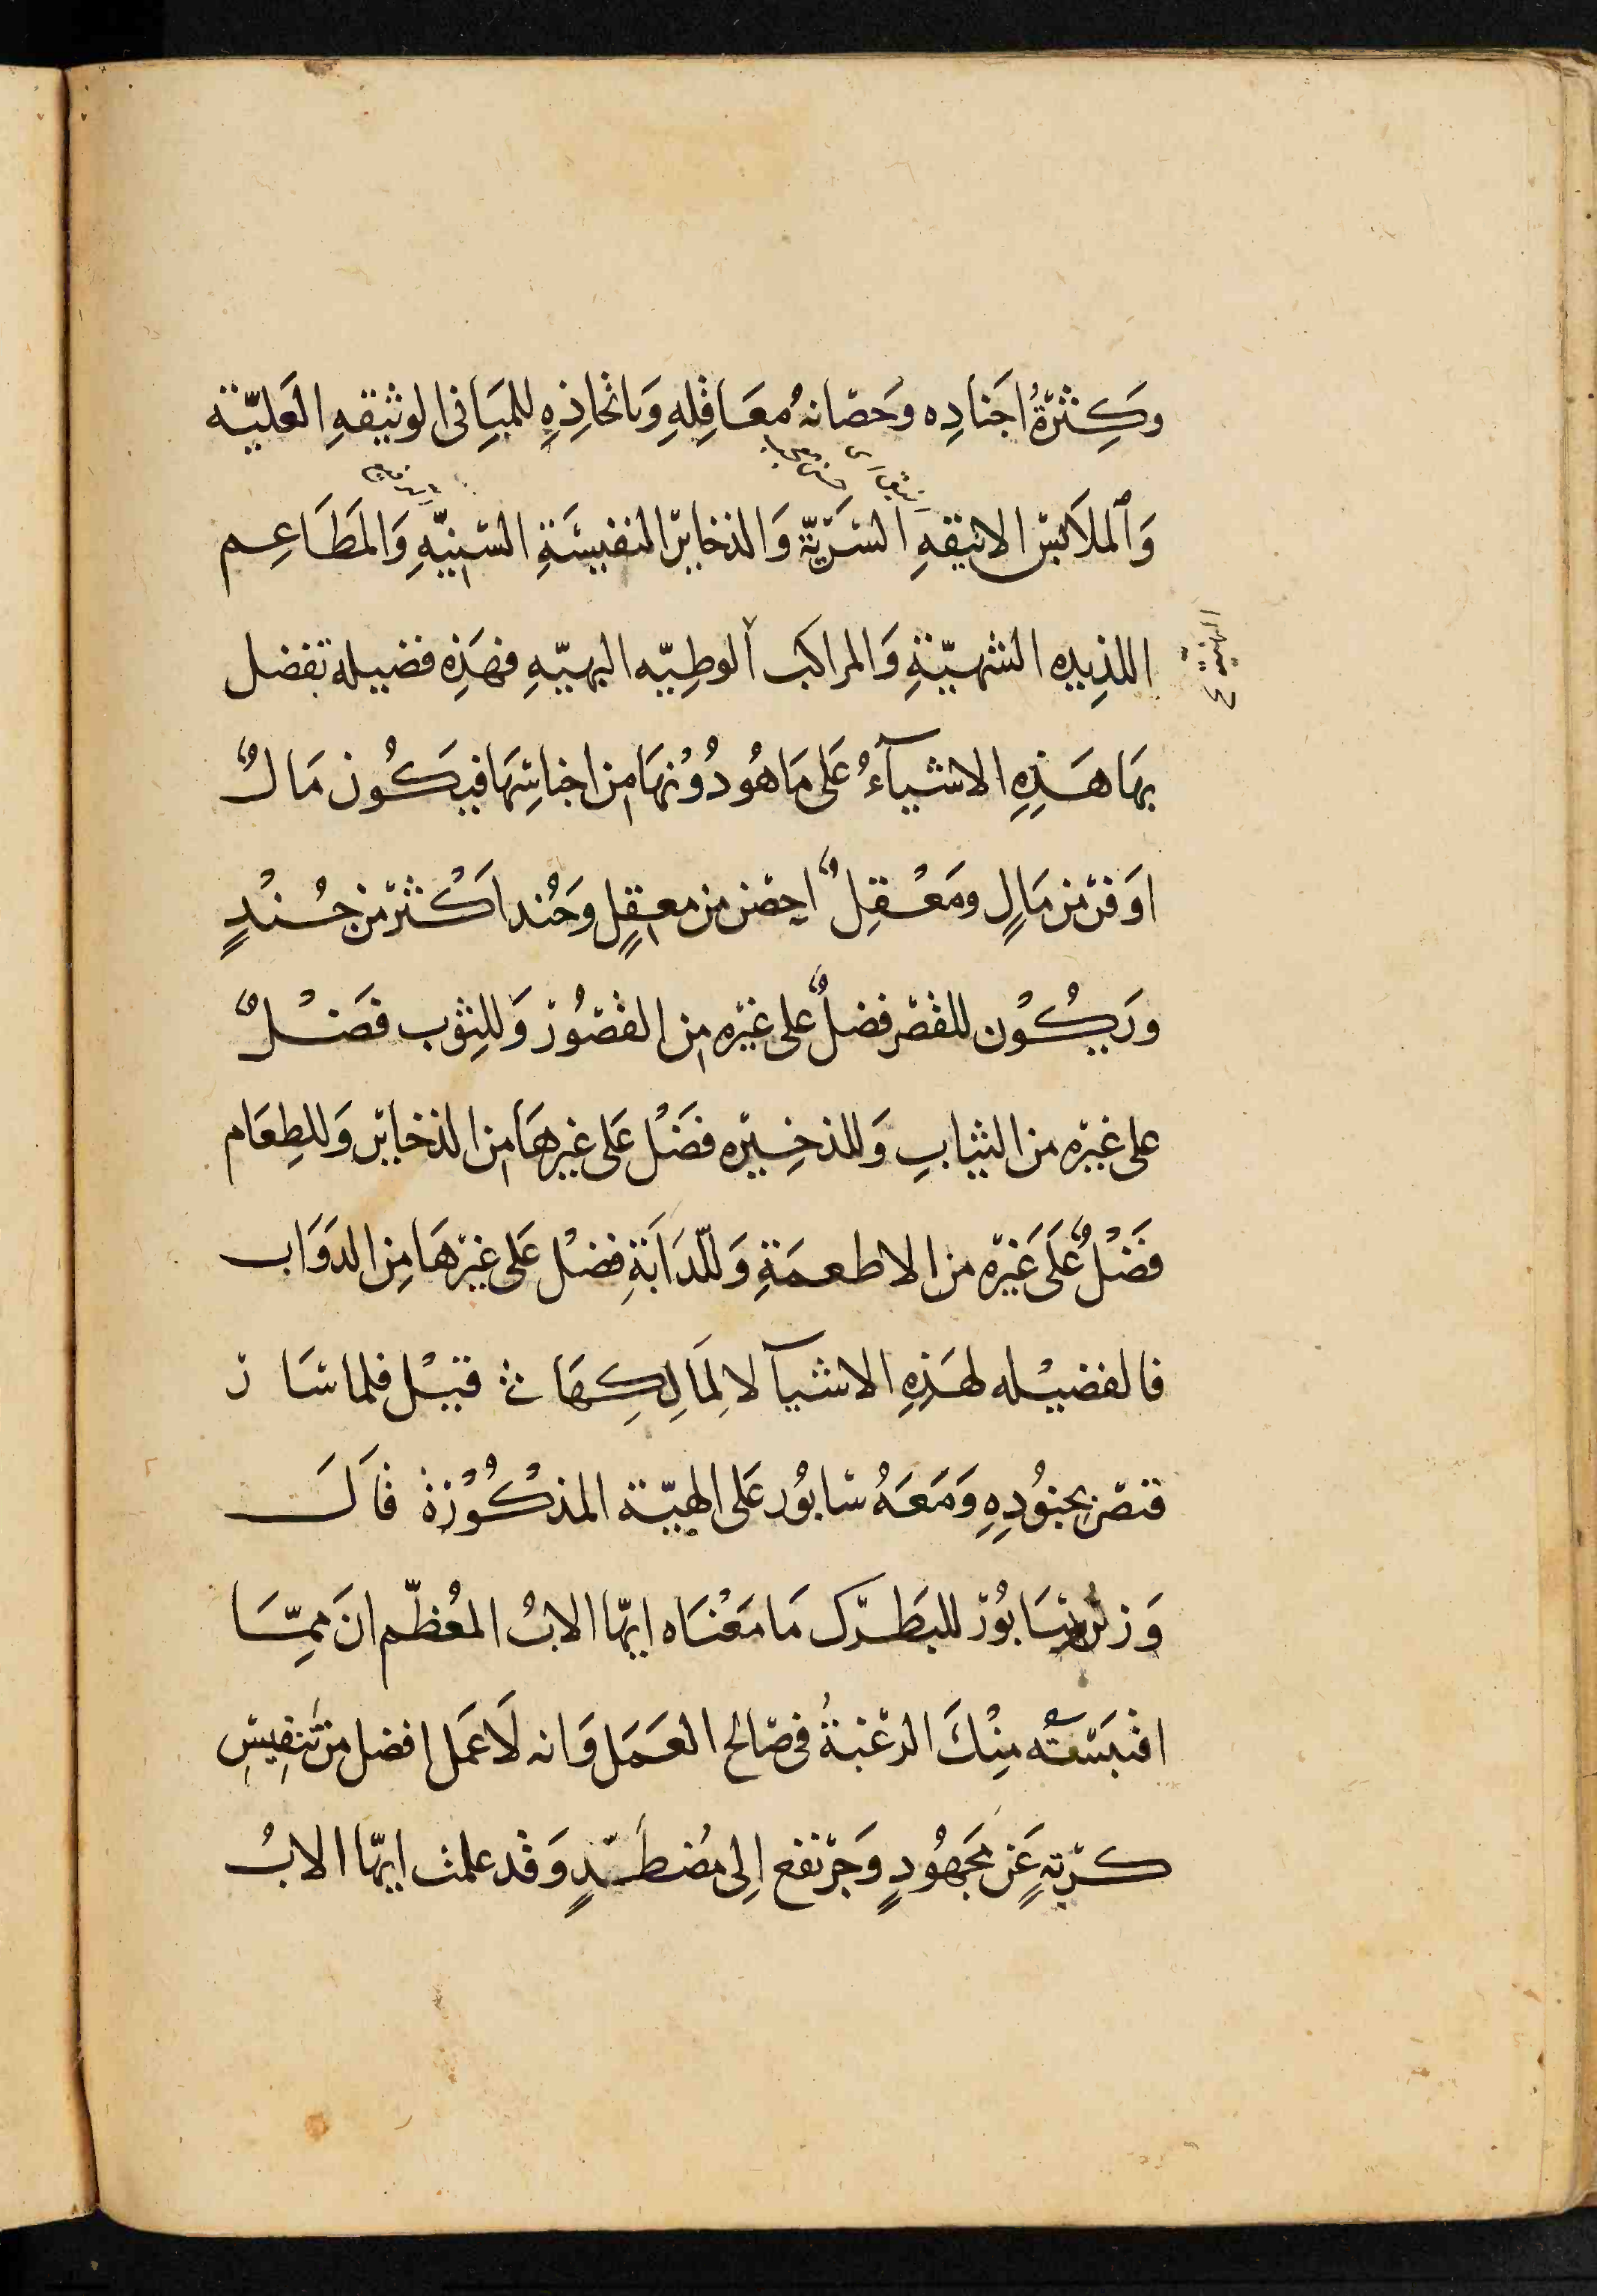 وَكِثرَةُ اجَنادِه وحَصَانهُ مَعَاقِلِهِ وَباتخاذِهِ للمبَانى الوثيقهِ العَليّة
وَالملَابسَ الانيقهِ السَرَيّة وَالذخايرَ النفيسَةِ السّنِيّهِ وَالمَطَاعِم
اللذِيده الشهيّةِ وَالمراكب الوطِيّه البهيّهِ فهَذِه فضيله تفضل
بهَا هَذِهِ الاشيآءُ عَلى مَا هُو دُوُنهَا مِن اجناسِهَا فيَكُون مَالٌ
اوَفرَ مَن مَالٍ ومَعْقِلٌ احصَن من معقِلٍ وجُند اَكْثر من جُنْدٍ
وَيكُوْن للقصْر فضلٌ على غيَره مِن القصُوْر وَللثِوْب فَضْلٌ
على غيَره من الثيابِ وَللذخِيرَه فَضْل عَلى غيرهَا مِن الذخايرَ وَللطِعَام
فَضْلٌ عَلَى غَيَرَه من الاطعمَةِ وَللّدَابَةِ فضْل عَلى غيَرهَا مِن الدَوَاب
فالفضيْله لهَذِهِ الاشيآ لا لِمَالِكِهَا قيْل فلما سَار
قيصَر بجنوُدِهِ وَمَعَهُ سَابوُر عَلى الهيّة المذكُوْرَةُ قَالَ
وَزير سَابوُرْ للبَطرَك مَا مَعْنَاه ايهّا الابُ المُعظّم انَ ممِّا
اقتبَسْته مِنْكَ الرغبةُ فى صَالح العَمَل وَانه لَا عَمَل افضل من تَنفِيسِ
كربَةٍ عَن مَجهُودٍ وَجَر نفع اِلى مُضطَهدٍ وَقد علمت ايهّا الابُ